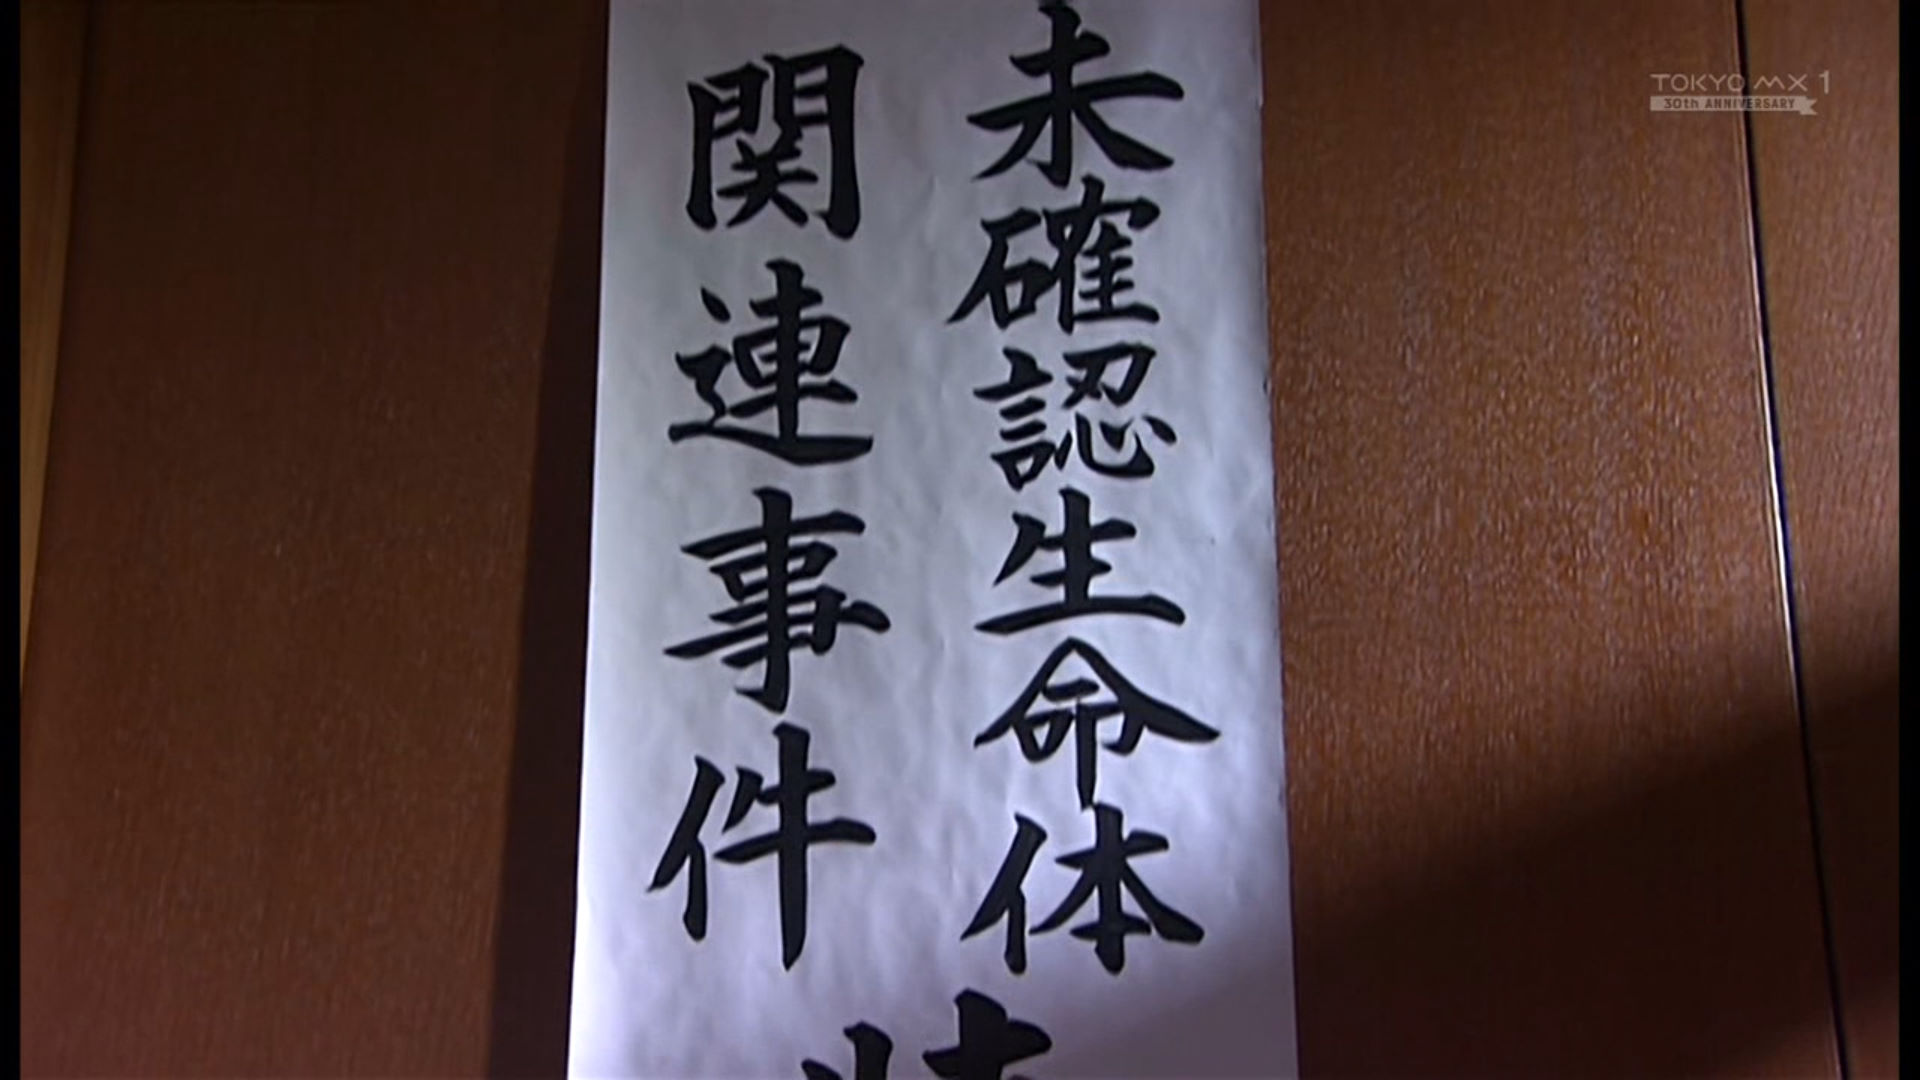 未確認生命体
関連事件
TOKYO MX 1
30th ANNIVERSARY